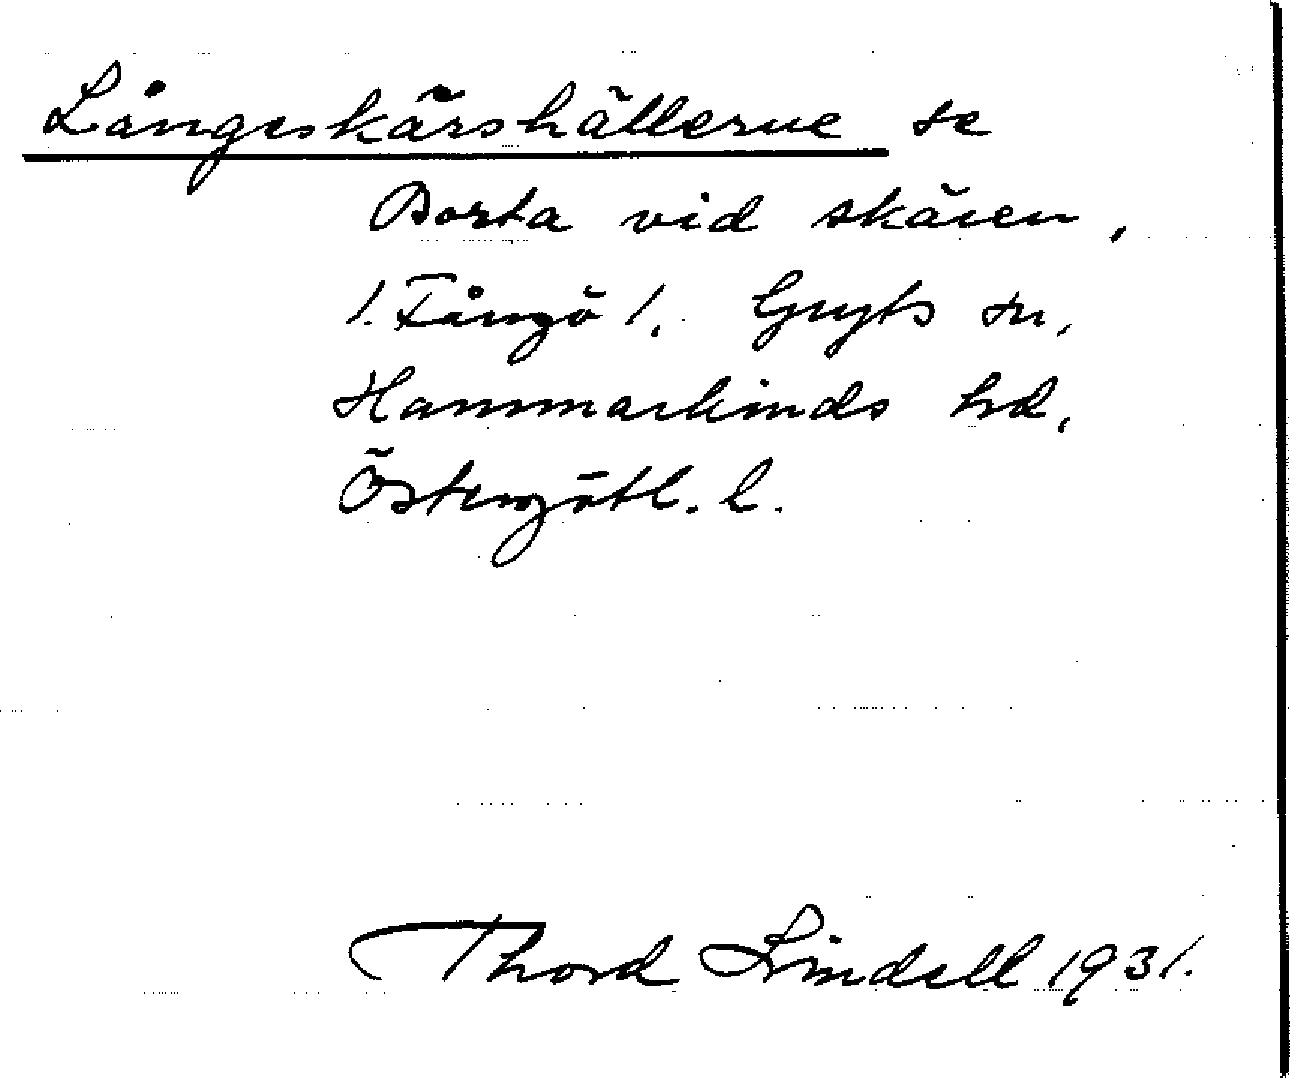 Långeskärshällerne se
Borta vid skären,
/. Fångö /. Gryts sn,
Hammarkinds hd,
Östergötl. l.
Thord Lindell 1931.